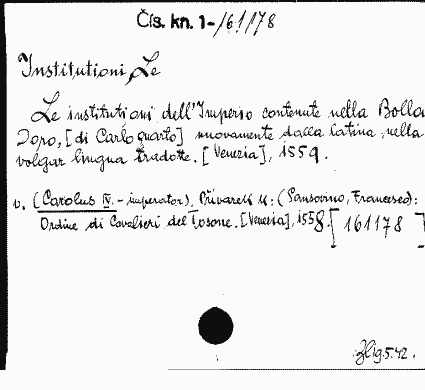 Čís. kn. 1-/61178
Institutioni, Le
Le institutioni dell'Imperio contenute nella Bolla
Doro, [di Carlo quarto] nuovamente dalla latina, nella
volgar lingua tradotte. [Venezia], 1559.
v. (Carolus IV. - imperator), Přívazek k: (Sansovino, Francesco):
Ordine di Cavalieri del Tosone. [Venezia], 1558. [161178]
5.42.